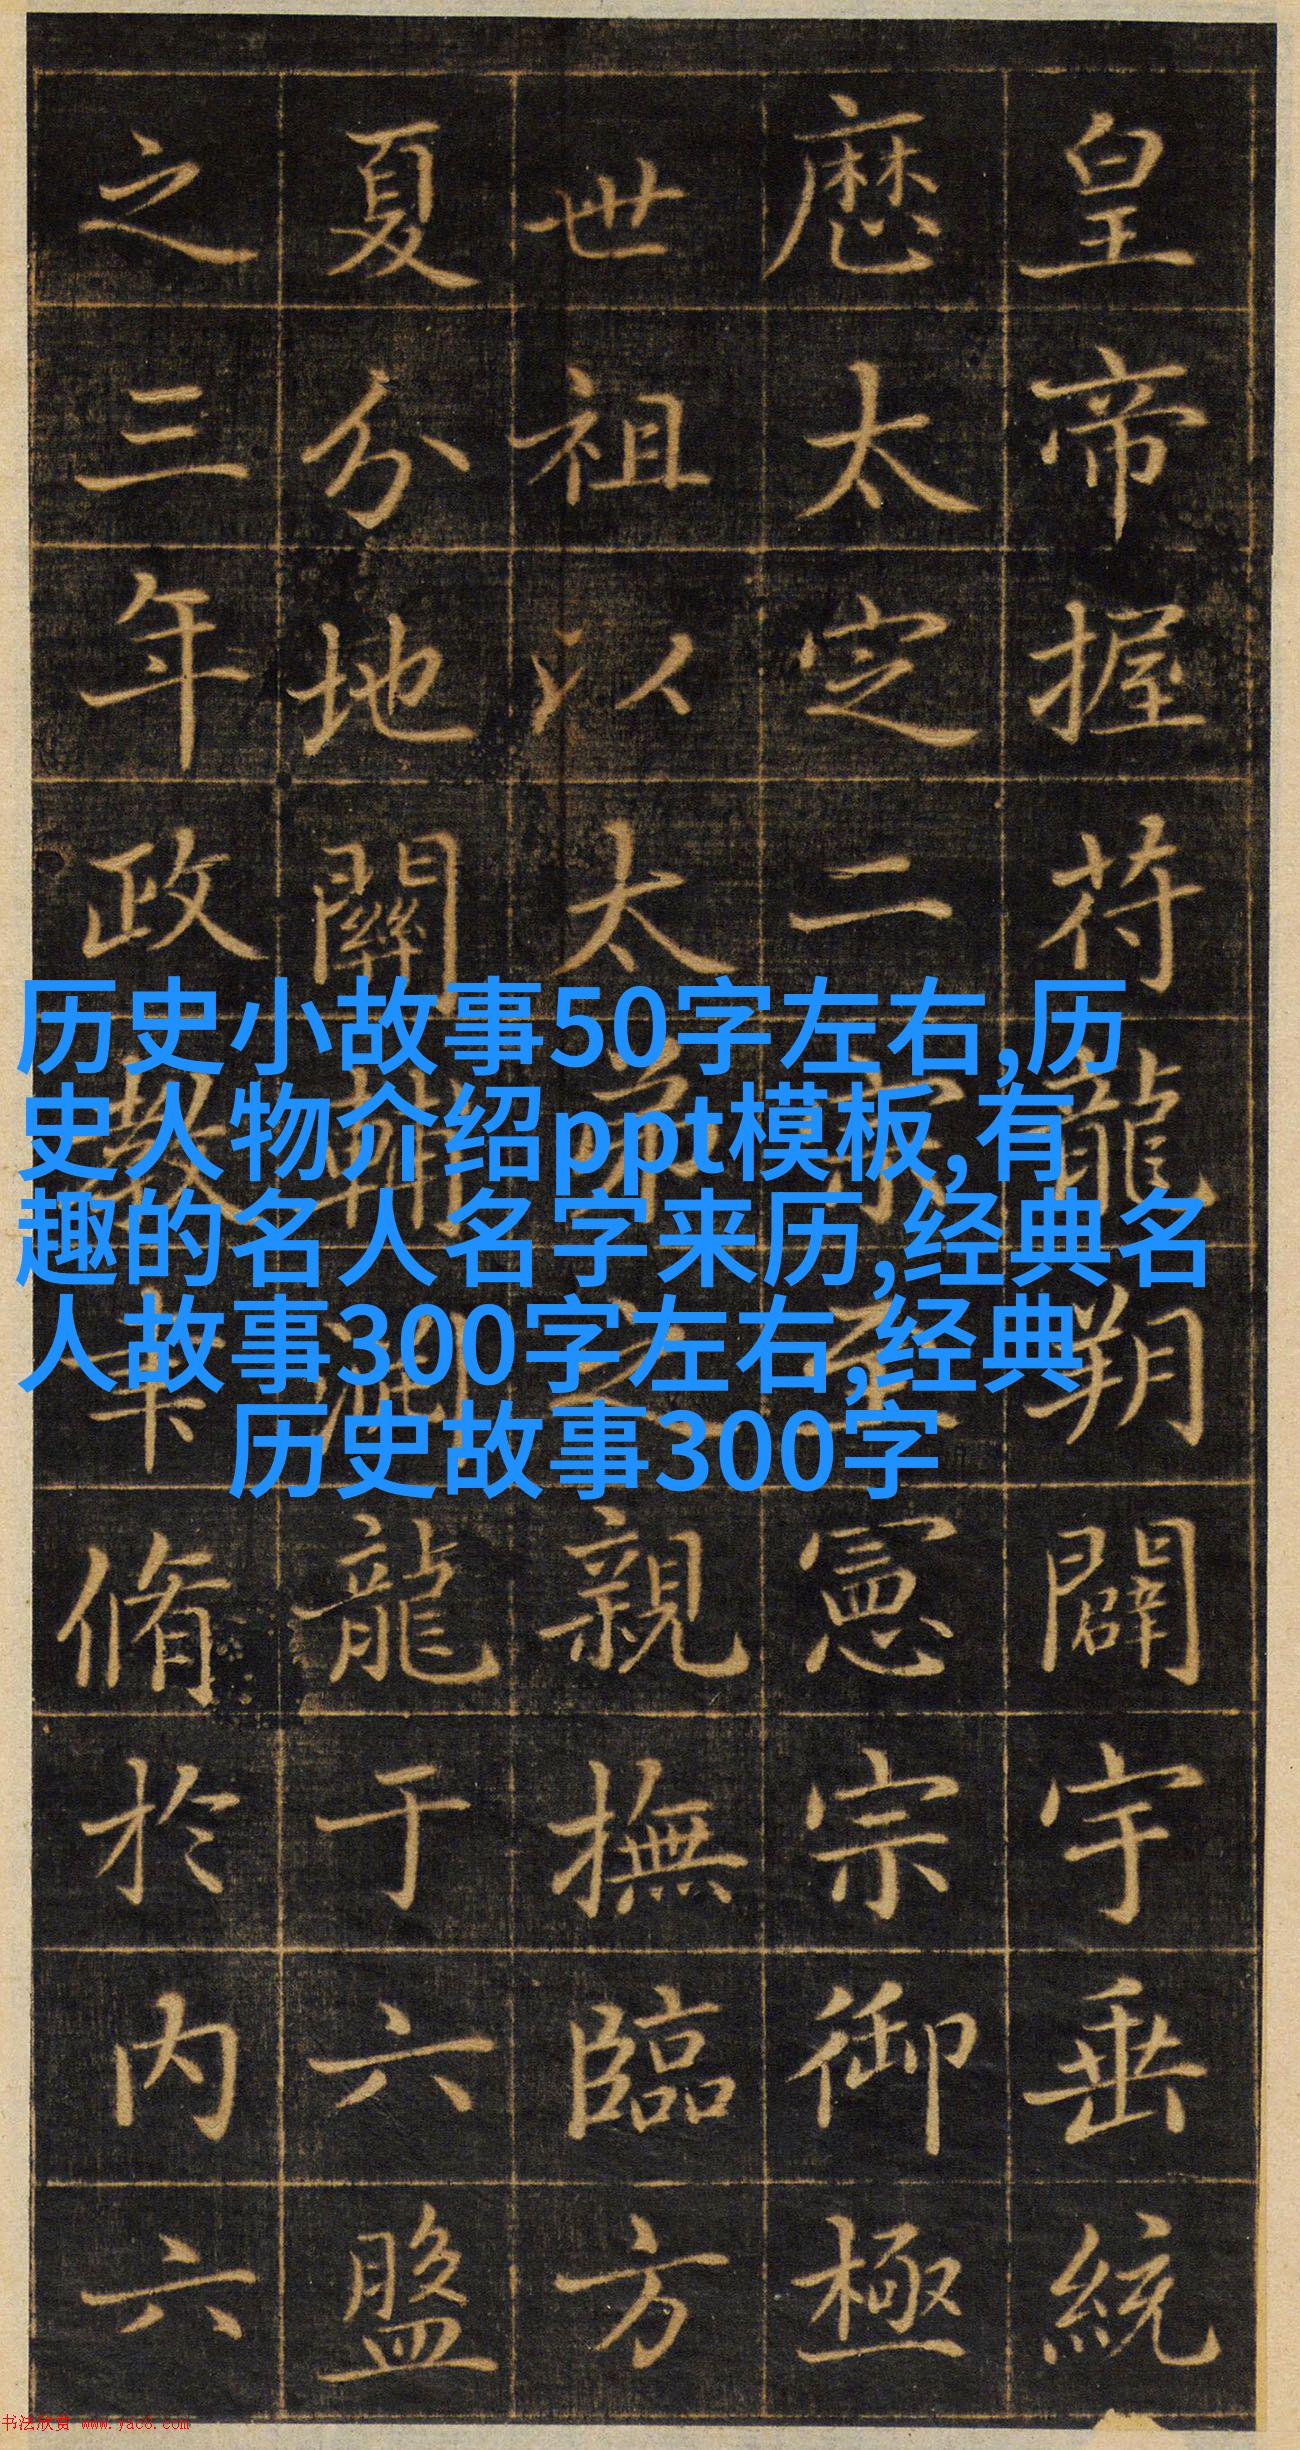 皇帝握苻龍朔闢宇垂統
厯太定二宗憲宗御極
世祖以太弟之親撫臨方
夏分地關輔淵龍于六盤
之三年政教脩於内六
历史小故事50字左右,历
史人物介绍ppt模板,有
趣的名人名字来历,经典名
人故事300字左右,经典
历史故事300字
书法欣赏 www.yac8.com